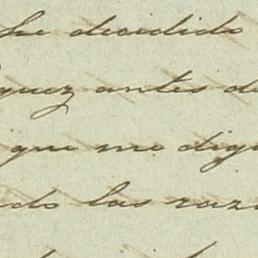 he decidido
quez antes de
que me dig
do las raz